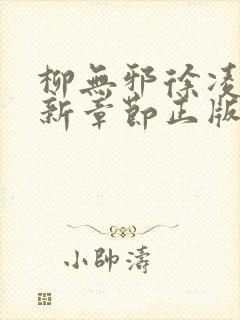 柳無邪徐凌
新章節正版
小帥濤